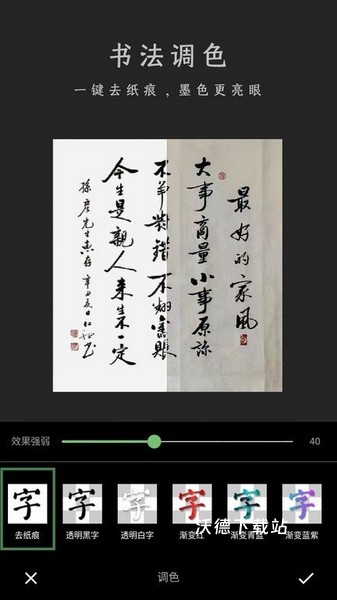 书法调色
一键去纸痕，墨色更亮眼
最好的家風
大事商量小事原谅
不争對錯不翻舊賬
今生是親人来生不一定
孫彦先生惠存 辛丑
效果强弱 40
字 字 字 字 字 字
去纸痕 透明黑字 透明白字 渐变红 渐变青蓝 渐变蓝紫
沃德下载站
调色